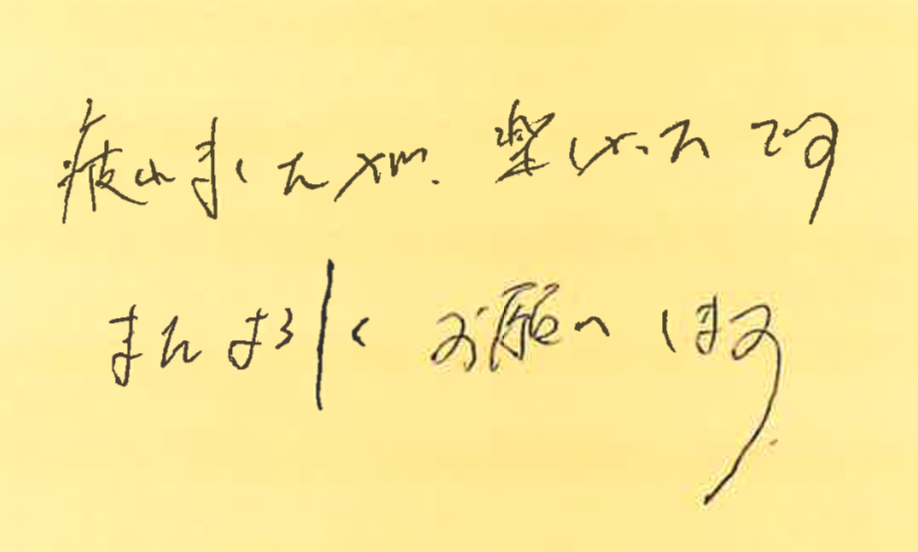 疲れましたが、楽しかったです
またよろしくお願いします